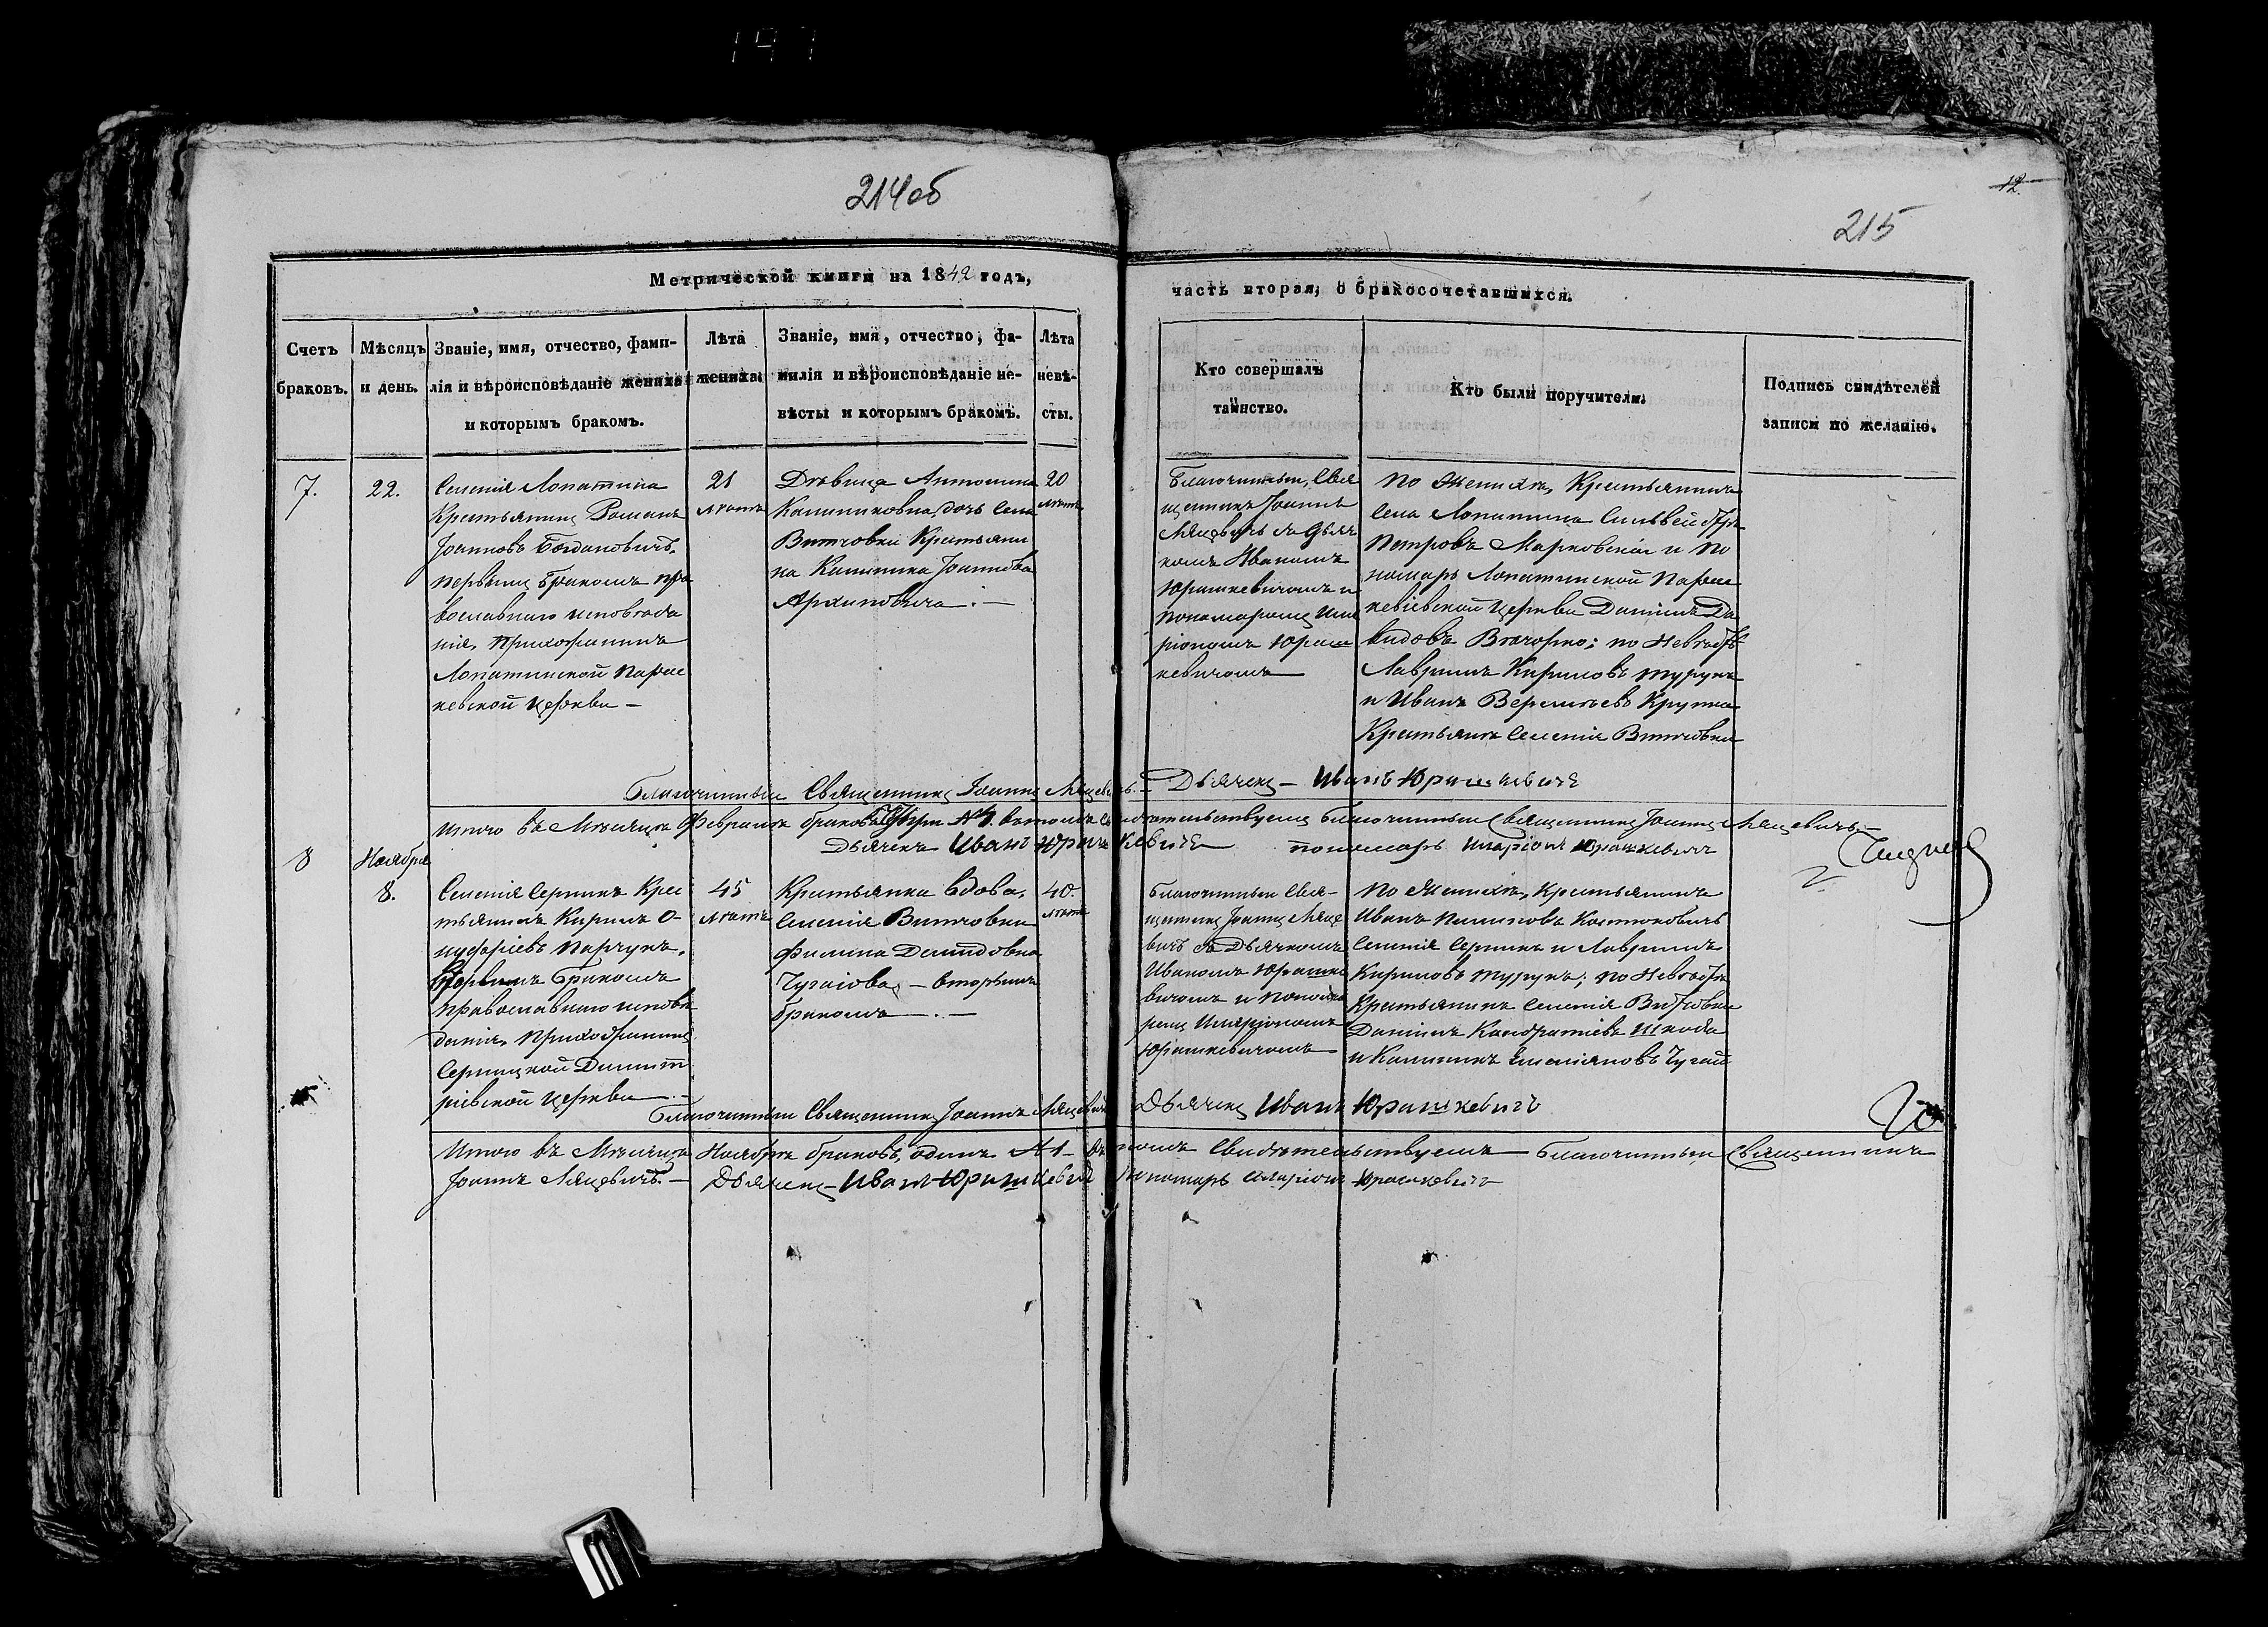 147
214об
12.
215
Метрической книги на 1842 годъ,
часть вторая, о бракосочетавшихся.
Счетъ браковъ.
Мѣсяцъ и день.
Званіе, имя, отчество, фами-
лія и вѣроисповѣданіе жениха
и которымъ бракомъ.
Лѣта
жениха.
Званіе, имя, отчество, фа-
милія и вѣроисповѣданіе не-
вѣсты и которымъ бракомъ.
Лѣта
невѣ-
сты.
Кто совершалъ
таинство.
Кто были поручители.
Подпись свидѣтелей
записи по желанію.
7.
22.
Селенія Лопатина
Крестьянинъ Романъ
Іоанновъ Богдановичъ,
первымъ бракомъ пра
вославнаго исповѣда
нія, прихожанинъ
Лопатинской Парас
кевской церкви —
21
лѣтъ
Дѣвица Антонина
Калиниковна, дочь села
Витчовки Крестьяни
на Калиника Іоаннова
Архиповича. —
20
лѣтъ
Благочинный, Свя
щенникъ Іоаннъ
Мацевичъ съ Дьяч
комъ Иваномъ
Юрашкевичомъ и
пономаремъ Ила
ріономъ Юраш
кевичомъ
По Женихѣ, Крестьянинъ
села Лопатина
Петровъ Марковскій и по
номарь Лопатинской Парас
кевіевской церкви Даніилъ Да
видовъ Вѣчорко; по Невѣстѣ
Лавринъ Кириловъ Турукъ
и Иванъ Крупка
Крестьяне Селенія Витчовки
Благочинный Священникъ Іоаннъ Мацевичъ. — Дьячекъ — Иванъ Юрашкевичъ
Итого въ Мѣсяцѣ Февралѣ браковъ въ томъ свидѣтельствуемъ Благочинный Священникъ Іоаннъ Мацевичъ —
Дьячекъ Иванъ Юрашкевичъ пономарь Иларіонъ Юрашкевичъ
8
Ноября
8.
Селенія Серникъ Крес
тьянинъ Кирилъ О-
нуфріевъ Парчукъ,
вторымъ бракомъ
православнаго исповѣ
данія, прихожанинъ
Серницкой Димит
ріевской церкви. —
45
лѣтъ
Крестьянка вдова,
Селенія Витчовки
Филипа Демидовна
Чугаіова, — вторымъ
бракомъ. —
40.
лѣтъ
Благочинный Свя-
щенникъ Іоаннъ Маце
вичъ съ Дьячкомъ
Иваномъ Юрашке
вичомъ и понома
ремъ Иларіономъ
Юрашкевичомъ
По Женихѣ, Крестьянинъ
Иванъ Костюковичъ
Селенія Серникъ и Лавринъ
Кириловъ Турукъ; по Невѣстѣ
Крестьянинъ Селенія Витчовки
Даніилъ Кондратіевъ Шкода
и Калиникъ Емеліяновъ Чугай
Благочинный Священникъ Іоаннъ Мацевичъ Дьячекъ Иванъ Юрашкевичъ
Итого въ Мѣсяцѣ Ноябрѣ браковъ, одинъ № 1 — въ томъ Свидѣтельствуемъ Благочинный Священникъ
Іоаннъ Мацевичъ. — Дьячекъ — Иванъ Юрашкевичъ Пономарь Иларіонъ Юрашкевичъ